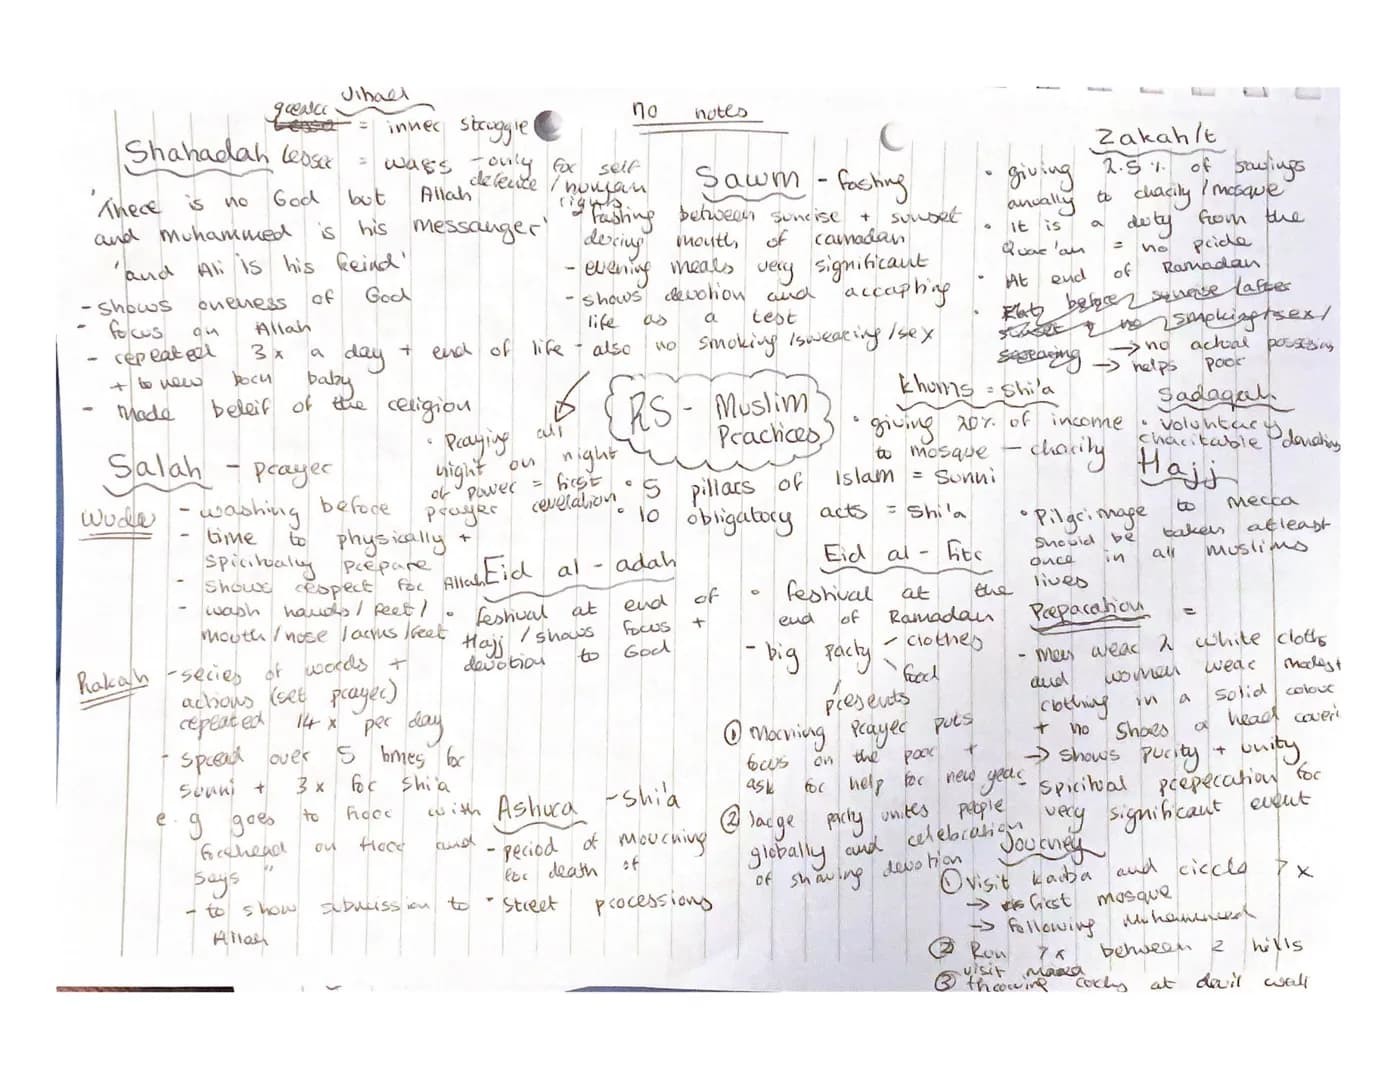 Jihad
greater = inner struggle
no notes
Lesser = wars - only for self
defence / human
rights
Shahadah
'There is no God but Allah
and muhammed is his messanger'
'and Ali is his freind'
- shows oneness of God
- focus on Allah
- repeated 3x a day + end of life
+ to new born baby
- Made beleif of the religion
Sawm - fasting
- fasting between sunrise + sunset
during mouth of ramadan
- evening meals very significant
- shows devotion and accapting
life as a test
- also no smoking / swearing / sex
Zakah/t
• giving 2.5% of savings
anually to charity / mosque
• It is a duty from the
Quar'an = no pride
• At end of Ramadan
• before sunrise / after
sunset + no smoking + sex /
swearing → no actual possesions
→ helps poor
RS - Muslim
Practices
• Praying all
night on night
of power = first
revelation
• 5 pillars of Islam = Sunni
• 10 obligatory acts = Shi'a
Khums = Shi'a
• giving 20% of income
to mosque - charity
Sadaqah
• voluntary
charitable donations
Salah - prayer
Wudu - washing before prayer
- time to physically +
spiritually prepare
- Shows respect for Allah
- wash hands / feet /
mouth / nose / arms / feet
Rakah - series of words +
actions (set prayer)
repeated 14 x per day
- spread over 5 times for
Sunni + 3 x for Shi'a
e.g goes to floor with
forehead on floor and
says "
- to show submission to
Allah
Eid al - adah
• festival at end of
Hajj / shows focus +
devotion to God
Ashura - Shi'a
- period of mourning
for death of
• street processions
Eid al - fitr
• festival at the
end of Ramadan
- big party - clothes
\ food
/ presents
① Morning Prayer puts
focus on the poor +
ask for help for new year
② large party unites people
globally and celebration
of showing devotion
Hajj
• Pilgrimage to mecca
should be taken atleast
once in all muslims
lives
Preparation =
- men wear 2 white cloths
and women wear modest
clothing in a solid colour
+ no shoes or head coveri
→ shows purity + unity
- spiritual preperation for
very significant event
Journey
① Visit kaaba and circle 7 x
→ first mosque
→ following Muhammed
② Run 7x between 2 hills
visit
③ throwing rocks at devil wall